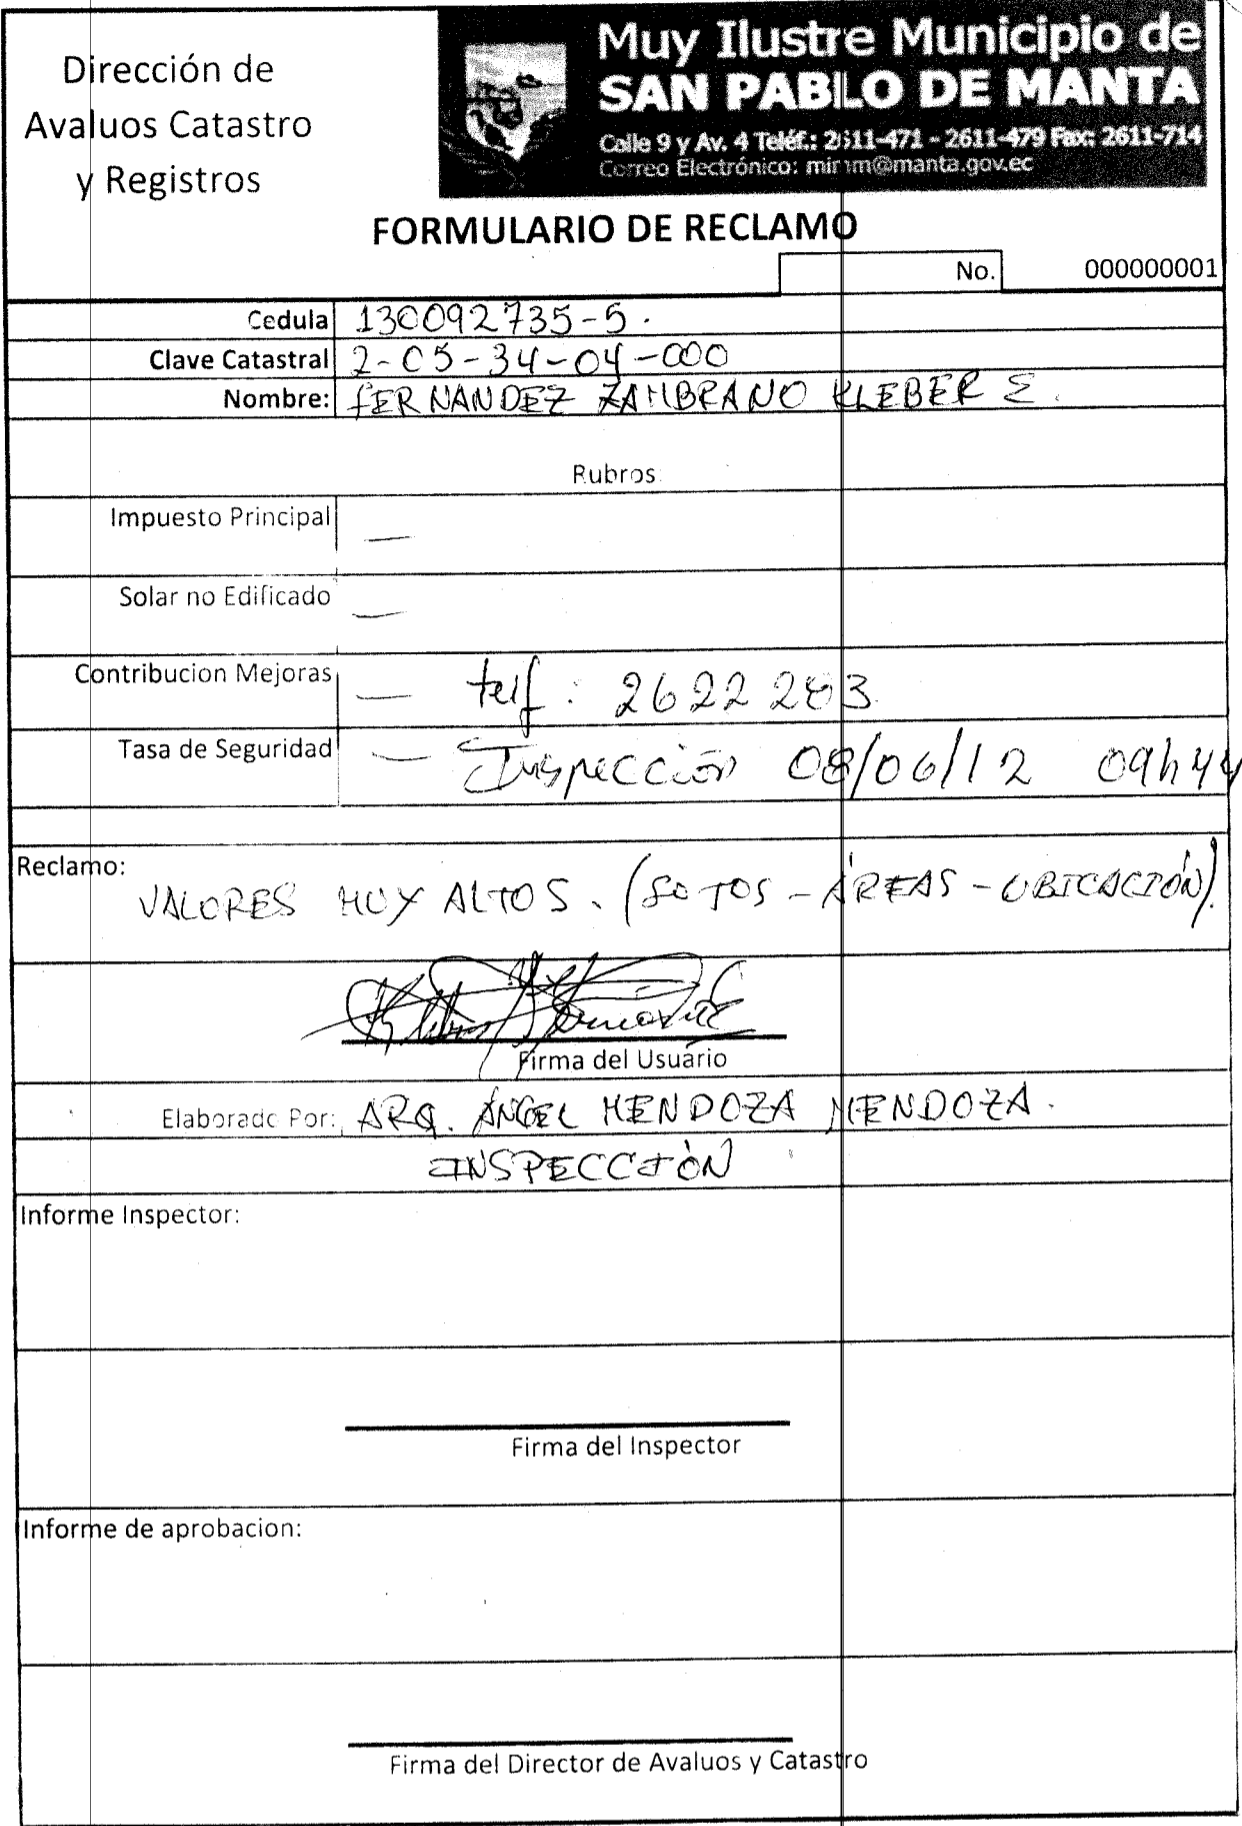 Dirección de
Avaluos Catastro
y Registros
Muy Ilustre Municipio de
SAN PABLO DE MANTA
Calle 9 y Av. 4 Teléf.: 2611-471 - 2611-479 Fax: 2611-714
Correo Electrónico: @manta.gov.ec
FORMULARIO DE RECLAMO
No. 000000001
Cedula 130092735-5.
Clave Catastral 2-05-34-04-000
Nombre: FERNANDEZ ZAMBRANO KLEBER E.
Rubros
Impuesto Principal —
Solar no Edificado —
Contribucion Mejoras — telf: 2622283
Tasa de Seguridad — Inspección 08/06/12 09h44
Reclamo:
VALORES MUY ALTOS. ( - ÁREAS - UBICACIÓN).
Firma del Usuario
Elaborado Por: ARQ. ÁNGEL MENDOZA MENDOZA.
INSPECCIÓN
Informe Inspector:
Firma del Inspector
Informe de aprobacion:
Firma del Director de Avaluos y Catastro